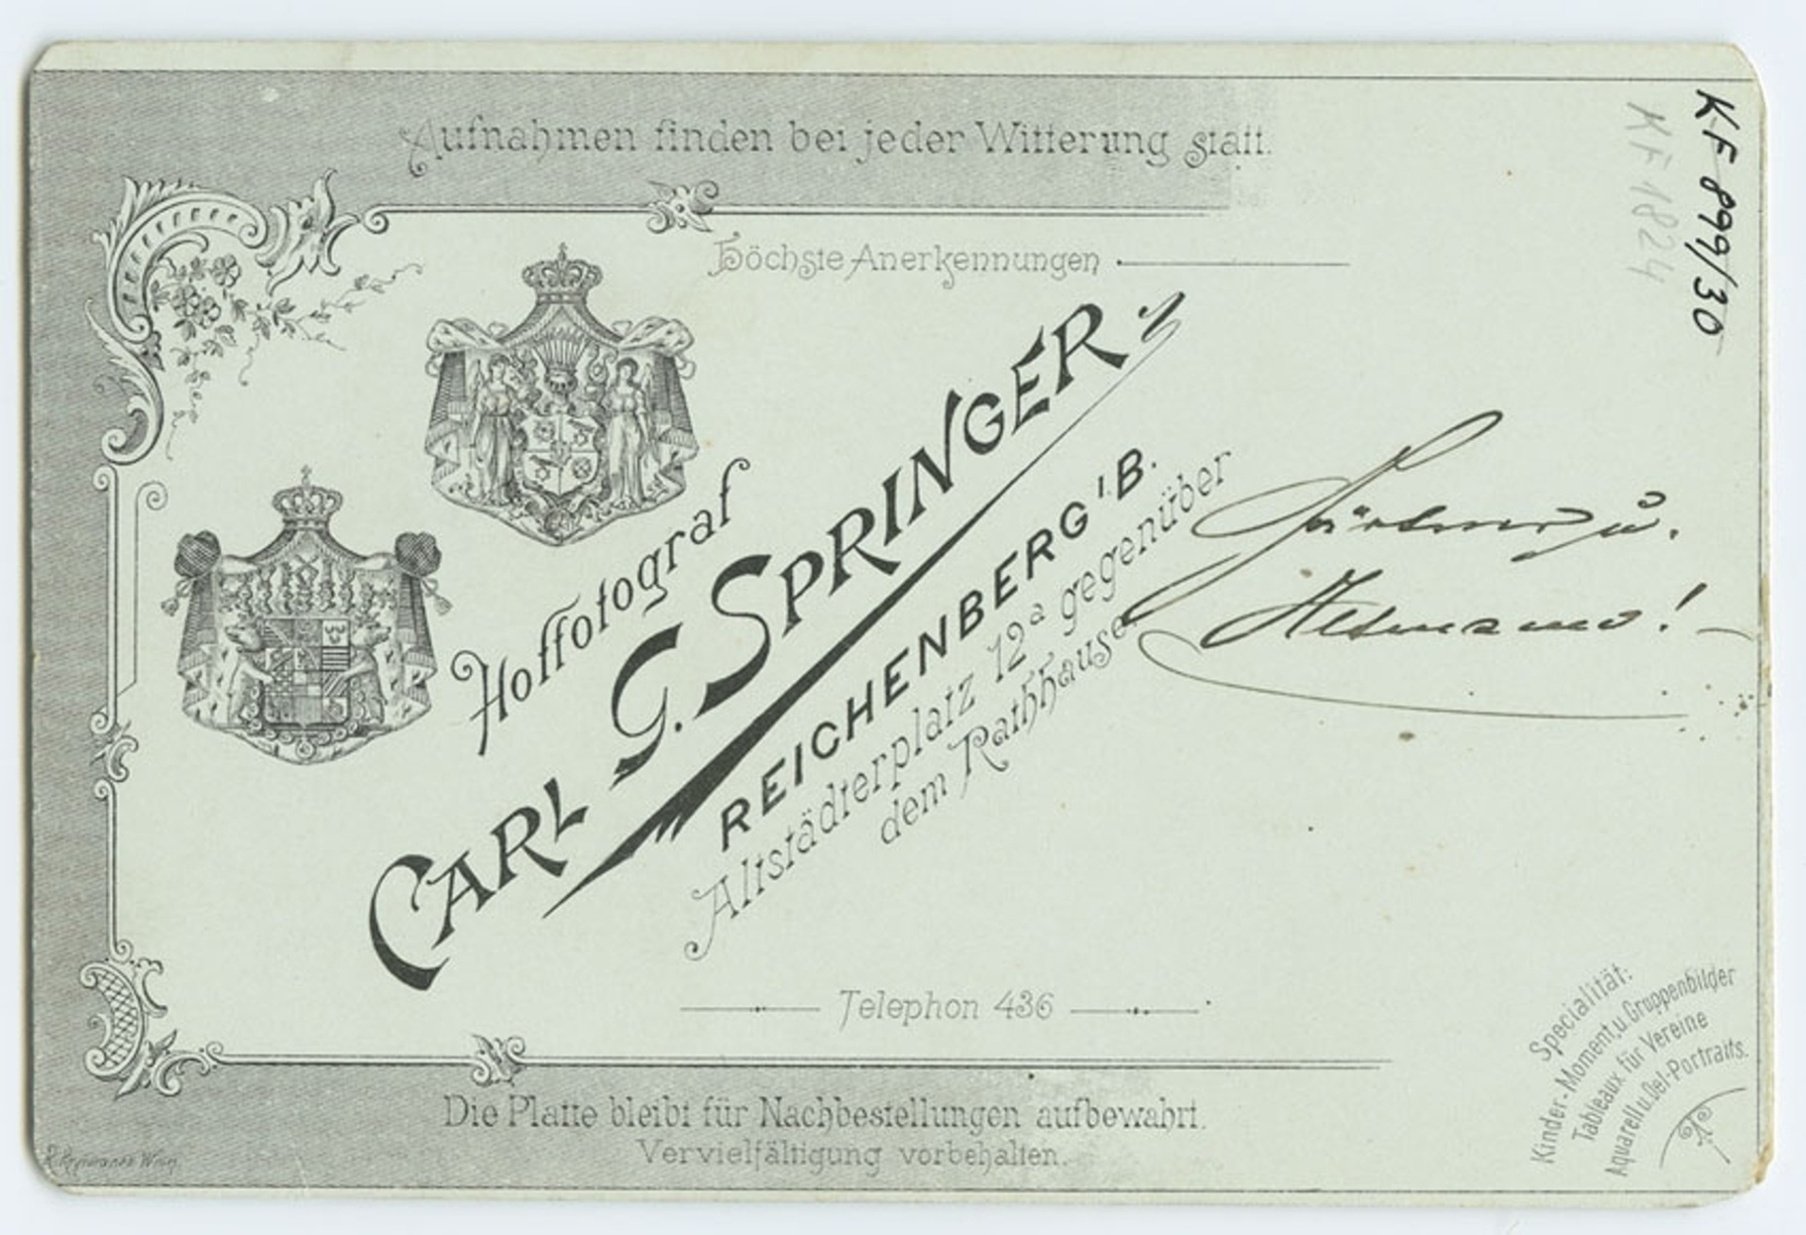 Aufnahmen finden bei jeder Witterung statt.
Höchste Anerkennungen
Hoffotograf
CARL G. SPRINGER
REICHENBERG i.B.
Altstädterplatz 12a gegenüber
dem Rathhause
Telephon 436
Die Platte bleibt für Nachbestellungen aufbewahrt.
Vervielfältigung vorbehalten.
Specialität:
Kinder-Moment u. Gruppenbilder
Tableaux für Vereine
Aquarell u. Oel-Portraits.
KF 899/30
KF 1824
Wien